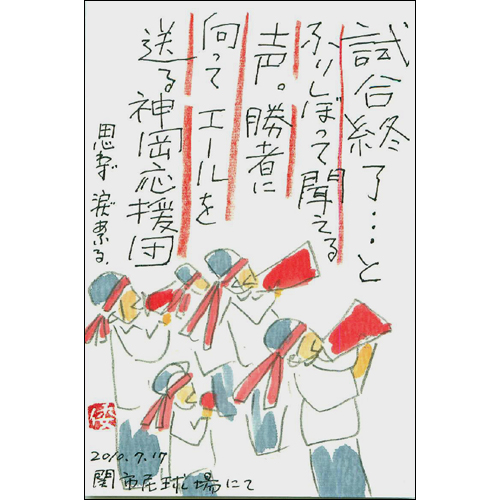 試合終了…と
ふりしぼって聞える
声。勝者に
向って エールを
送る神岡応援団
思わず 涙梨る.
2010.7.17
関市民球場にて